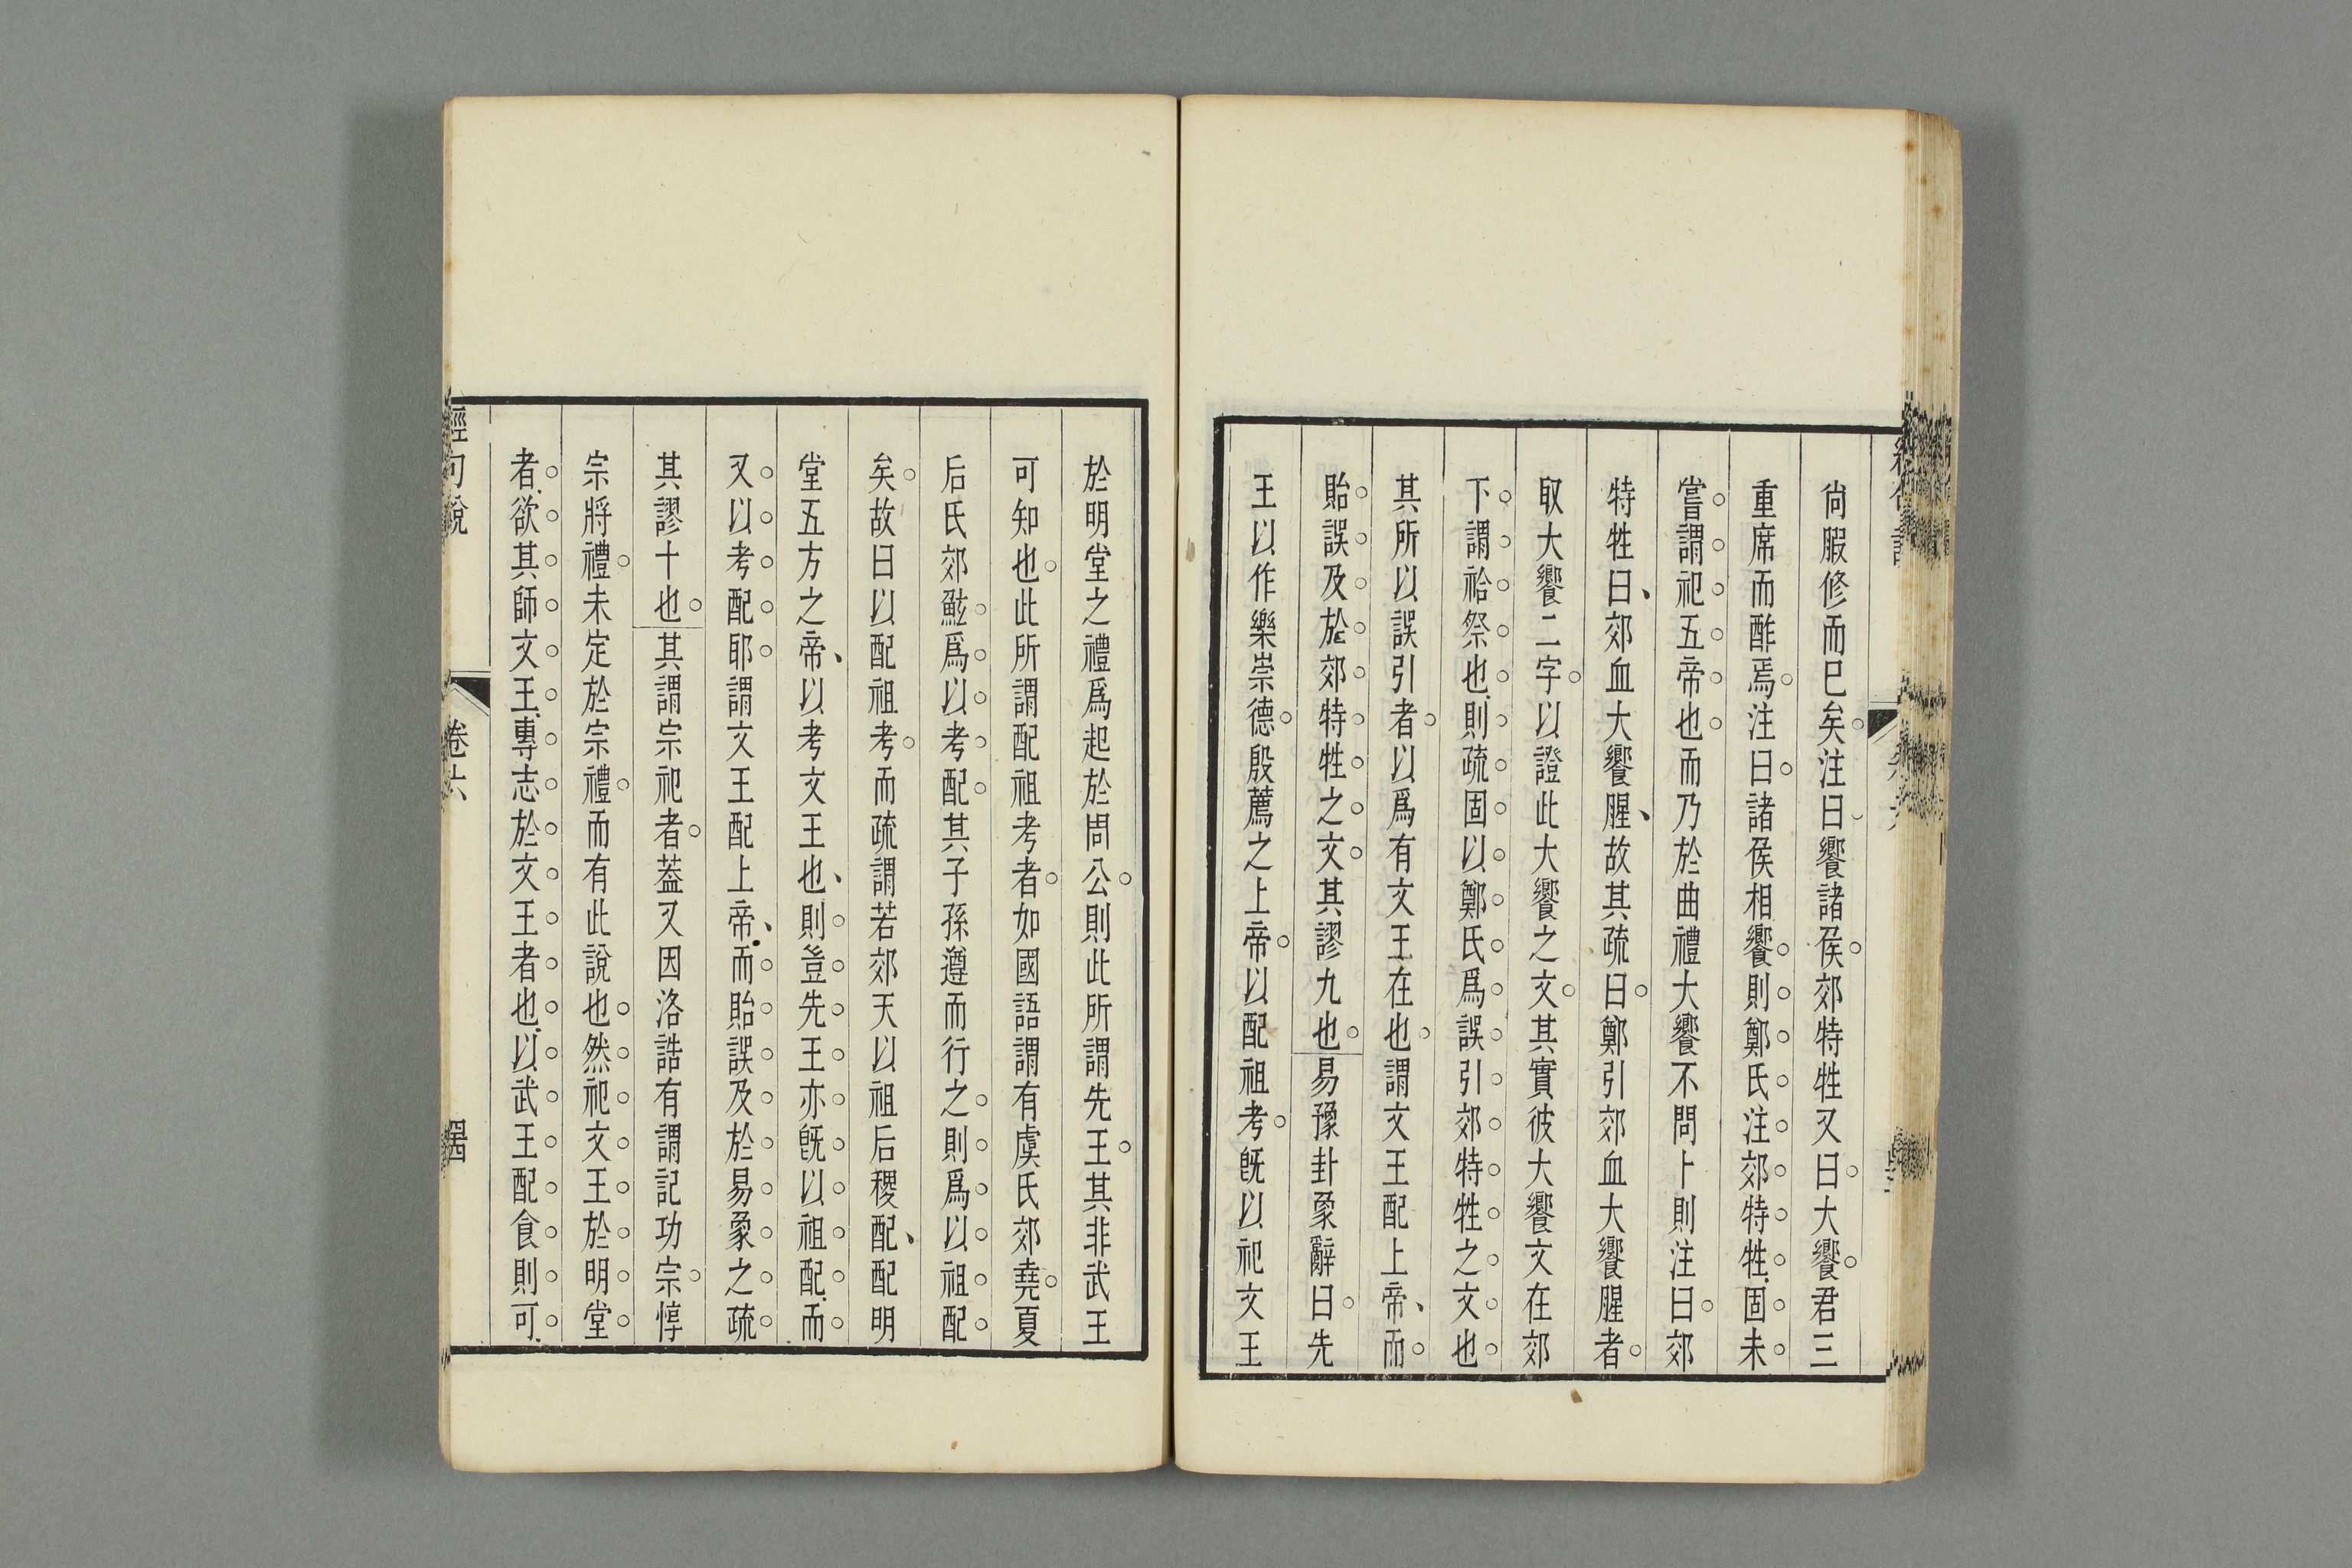 尙腶修而巳矣注曰饗諸侯郊特牲又曰大饗君三
重席而酢焉注曰諸侯相饗則鄭氏注郊特牲固未
嘗謂祀五帝也而乃於曲禮大饗不問卜則注曰郊
特牲曰郊血大饗腥故其疏曰鄭引郊血大饗腥者
取大饗二字以證此大饗之文其實彼大饗文在郊
下謂祫祭也則疏固以鄭氏爲誤引郊特牲之文也
其所以誤引者以爲有文王在也謂文王配上帝而
貽誤及於郊特牲之文其謬九也易豫卦象辭曰先
王以作樂崇德殷薦之上帝以配祖考旣以祀文王
於明堂之禮爲起於周公則此所謂先王其非武王
可知也此所謂配祖考者如國語謂有虞氏郊堯夏
后氏郊鮌爲以考配其子孫遵而行之則爲以祖配
矣故曰以配祖考而疏謂若郊天以祖后稷配配明
堂五方之帝以考文王也則豈先王亦旣以祖配而
又以考配耶謂文王配上帝而貽誤及於易象之疏
其謬十也其謂宗祀者葢又因洛誥有謂記功宗惇
宗將禮未定於宗禮而有此說也然祀文王於明堂
者欲其師文王專志於文王者也以武王配食則可
經句說
卷六